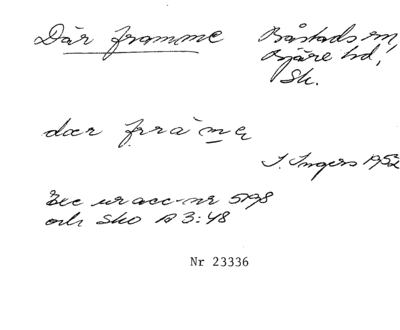 Där framme
Båstads sn,
Bjäre hd,
Sk.
dær frámę
I. Ingers 1952
Exc ur acc-nr 5198
och Sko A 3:48
Nr 23336